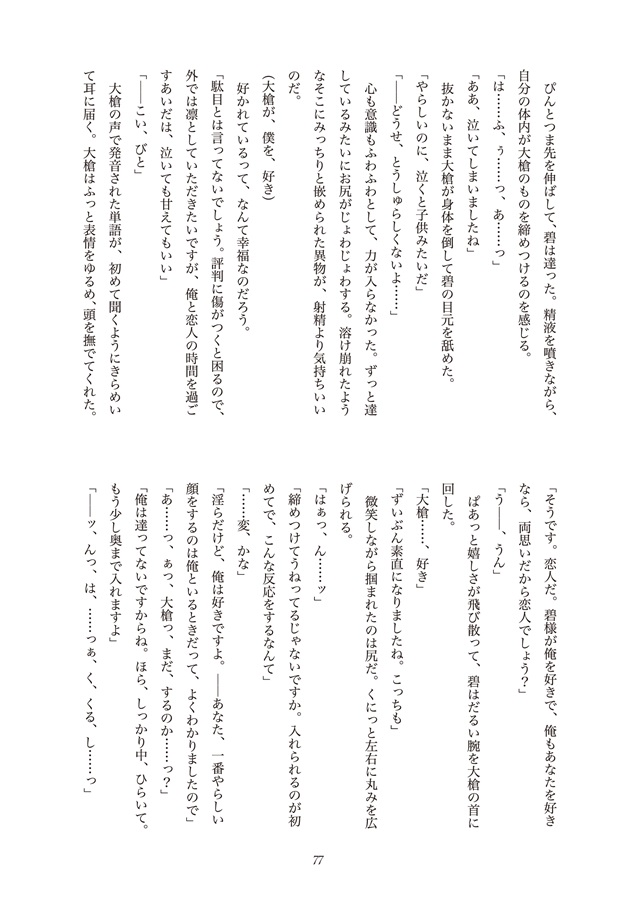 ぴんとつま先を伸ばして、碧は達った。精液を噴きながら、
自分の体内が大槍のものを締めつけるのを感じる。
「は……ふ、ぅ……っ、あ……っ」
「ああ、泣いてしまいましたね」
抜かないまま大槍が身体を倒して碧の目元を舐めた。
「やらしいのに、泣くと子供みたいだ」
「――どうせ、とうしゅらしくないよ……」
心も意識もふわふわとして、力が入らなかった。ずっと達
しているみたいにお尻がじょわじょわする。溶け崩れたよう
なそこにみっちりと嵌められた異物が、射精より気持ちいい
のだ。
(大槍が、僕を、好き)
好かれているって、なんて幸福なのだろう。
「駄目とは言ってないでしょう。評判に傷がつくと困るので、
外では凛としていただきたいですが、俺と恋人の時間を過ご
すあいだは、泣いても甘えてもいい」
「――こい、びと」
大槍の声で発音された単語が、初めて聞くようにきらめい
て耳に届く。大槍はふっと表情をゆるめ、頭を撫でてくれた。
「そうです。恋人だ。碧様が俺を好きで、俺もあなたを好き
なら、両思いだから恋人でしょう?」
「う――、うん」
ぱあっと嬉しさが飛び散って、碧はだるい腕を大槍の首に
回した。
「大槍……、好き」
「ずいぶん素直になりましたね。こっちも」
微笑しながら掴まれたのは尻だ。くにっと左右に丸みを広
げられる。
「はぁっ、ん……ッ」
「締めつけてうねってるじゃないですか。入れられるのが初
めてで、こんな反応をするなんて」
「……変、かな」
「淫らだけど、俺は好きですよ。――あなた、一番やらしい
顔をするのは俺といるときだって、よくわかりましたので」
「あ……っ、ぁっ、大槍っ、まだ、するのか……っ?」
「俺は達ってないですからね。ほら、しっかり中、ひらいて。
もう少し奥まで入れますよ」
「――ッ、んっ、は、……っぁ、く、くる、し……っ」
77